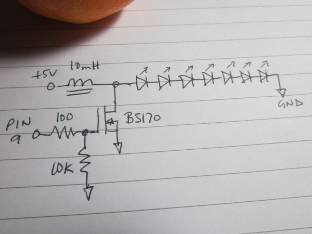 10mH
+5V
GND
PIN
9
100
BS170
10K